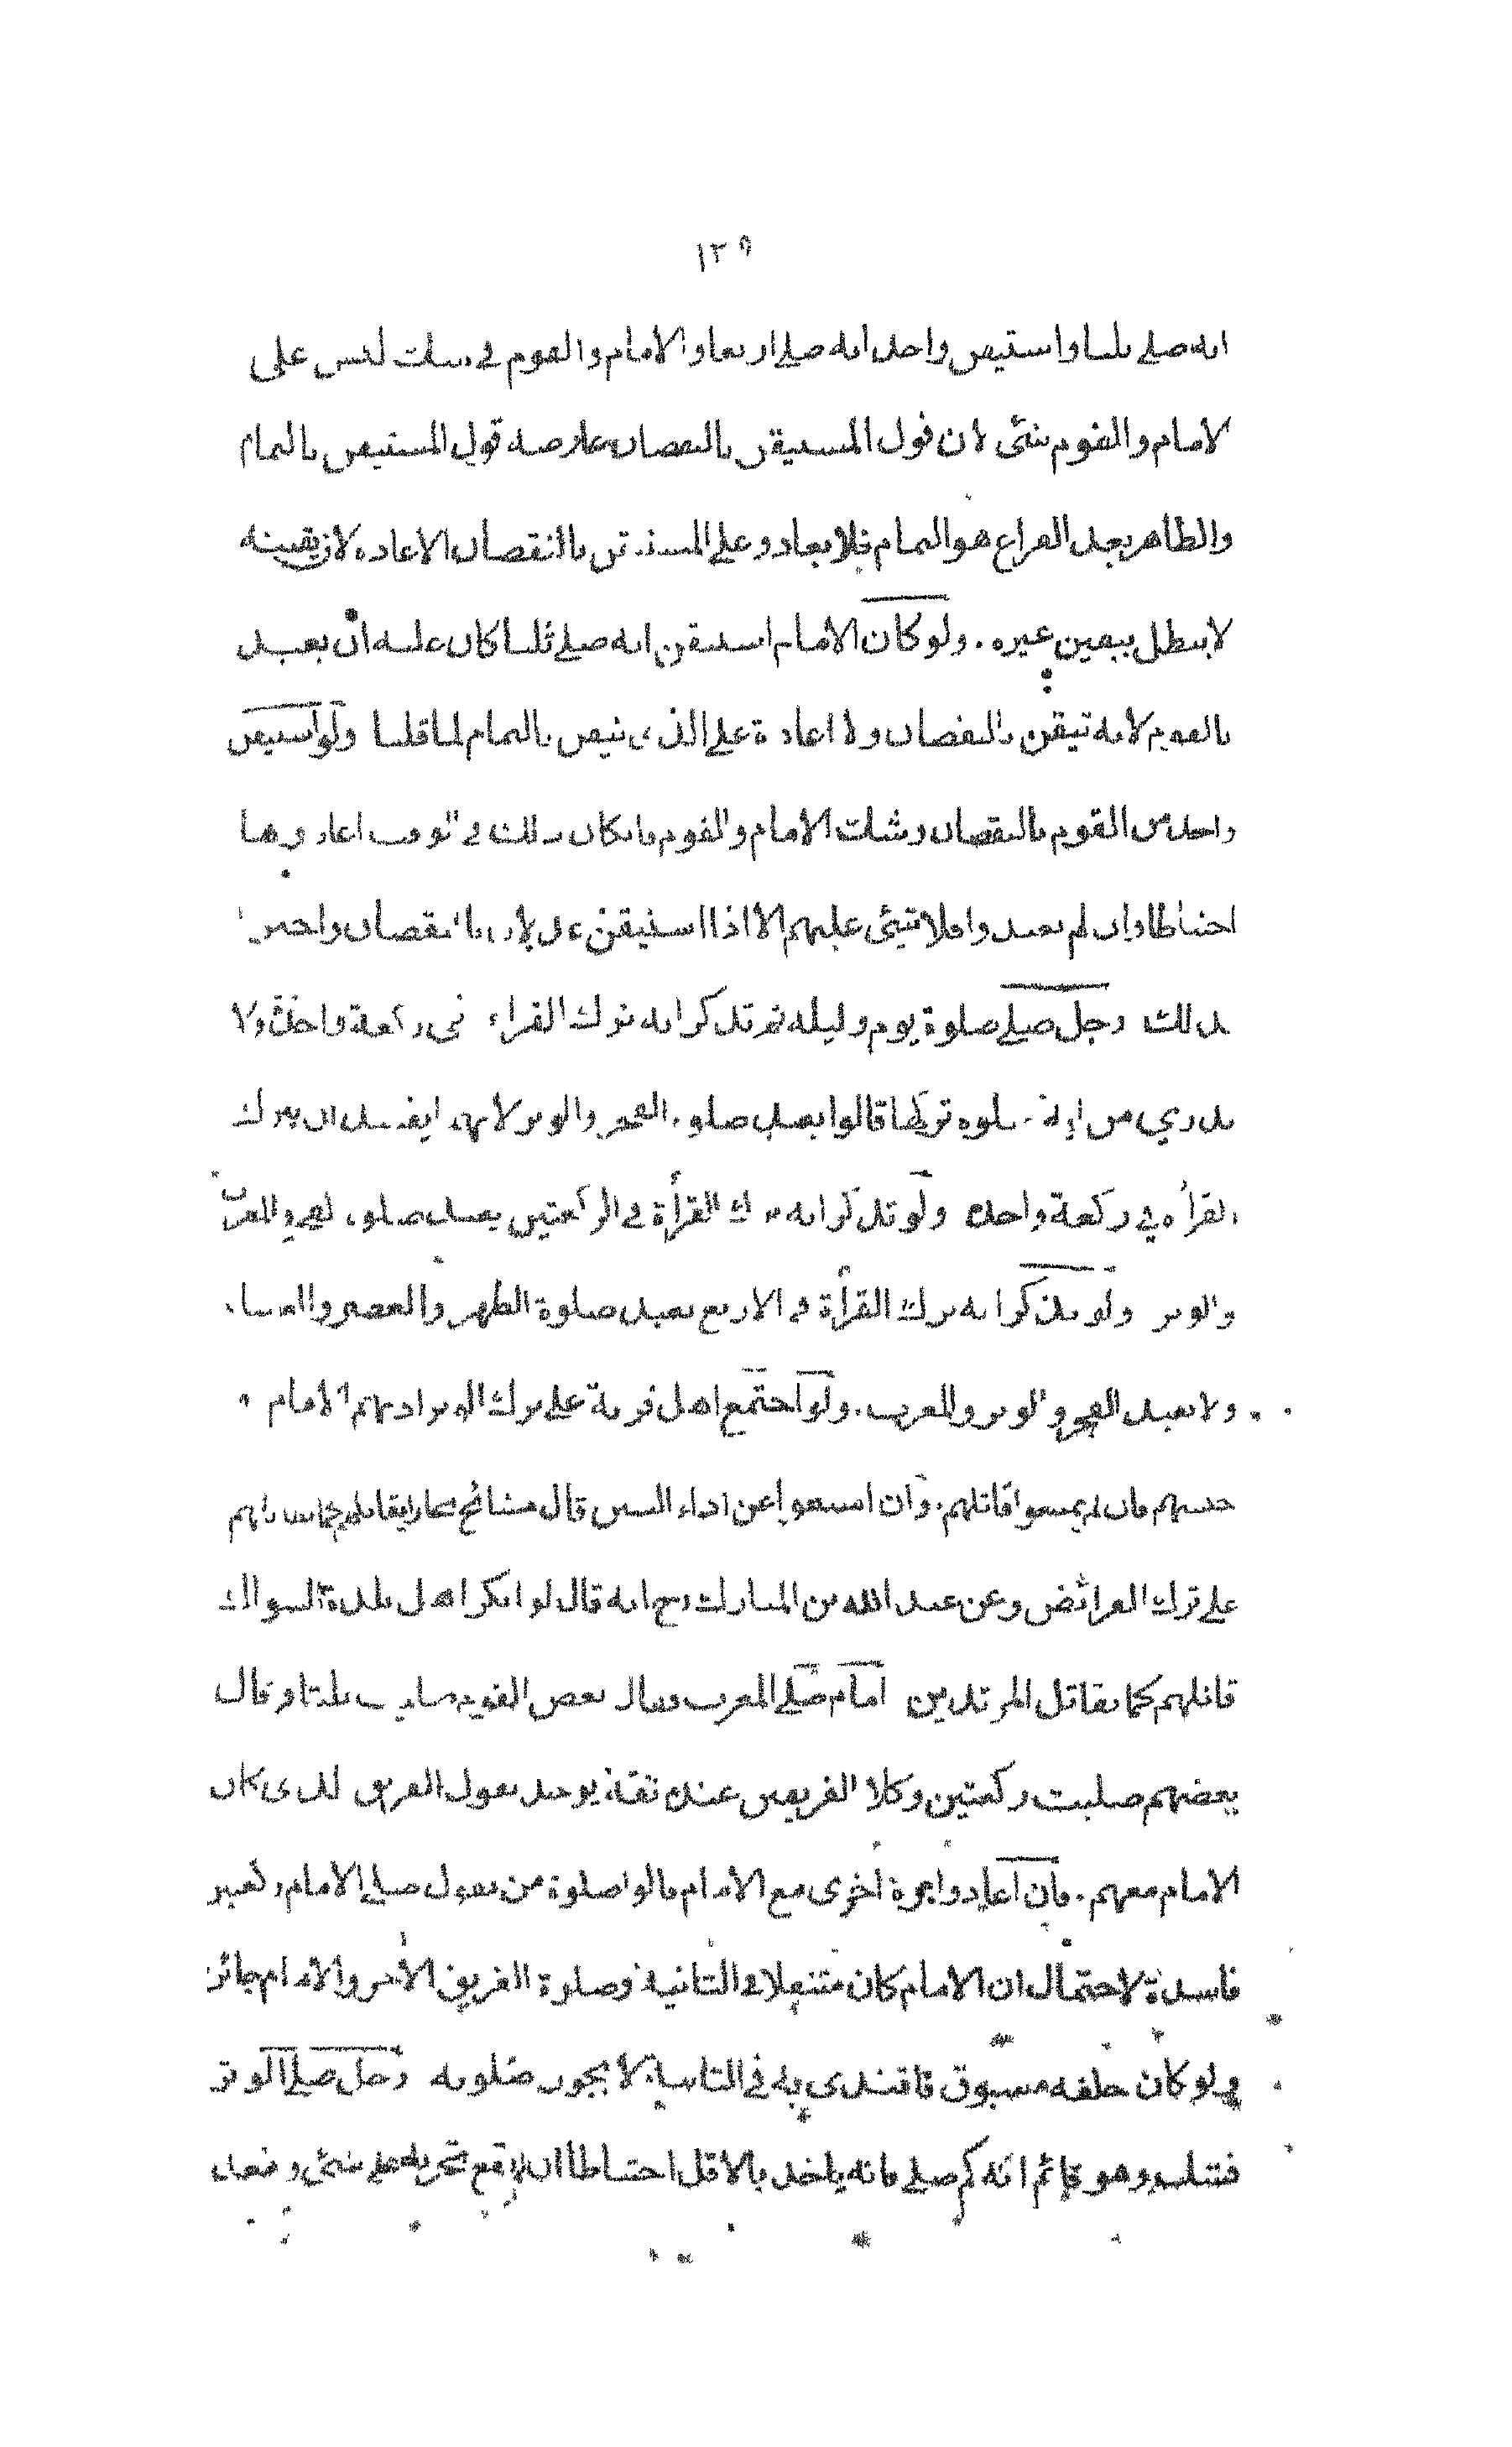 ١٢٥
انه صلى ثلثا واستيقن واحد انه صلى اربعا والامام والقوم في شك ليس على
الامام والقوم شئ لان قول المستيقن بالنقصان عارضه قول المستيقن بالتمام
والظاهر بعد الفراغ هو التمام فلا يعاد وعلى المستيقن بالنقصان الاعادة لان يقينه
لا يبطل بيقين غيره ۰ ولو كان الامام استيقن انه صلى ثلثا كان عليه ان يعيد
بالقوم لانه تيقن بالنقصان ولا اعادة على الذي تيقن بالتمام لما قلنا ولو استيقن
واحد من القوم بالنقصان وشك الامام والقوم فان كان ذلك في الوقت اعادوها
احتياطا وان لم يعيدوا فلا شئ عليهم الا اذا استيقن عدلان بالنقصان واخبرا
بذلك رجل صلى صلوة يوم وليلة ثم تذكر انه ترك القراءة في ركعة واحدة ولا
يدري من اية صلوة تركها قالوا يعيد صلوة الفجر والوتر لانهما يفسدان بترك
القرأة في ركعة واحدة ولو تذكر انه ترك القرأة في الركعتين يعيد صلوة الفجر والمغرب
والوتر ولو تذكر انه ترك القرأة في الاربع يعيد صلوة الظهر والعصر والعشاء
ولا يعيد الفجر والوتر والمغرب ۰ ولو اجتمع اهل قرية على ترك الوتر ادبهم الامام و
حبسهم فان لم يمتنعوا قاتلهم ۰ وان امتنعوا عن اداء السنن قال مشائخ بخارا يقاتلهم كما يقاتلهم
على ترك الفرائض وعن عبد الله بن المبارك رح انه قال لو انكر اهل بلدة السواك
قاتلهم كما يقاتل المرتدين امام صلى المغرب فقال بعض القوم صليت ثلثا وقال
بعضهم صليت ركعتين وكلا الفريقين عنده ثقة يوخذ بقول الفريق الذي كان
الامام معهم ۰ فان اعادوا مرة اخرى مع الامام قالوا صلوة من يقول صلى الامام
فاسدة لاحتمال ان الامام كان متنفلا في الثانية وصلوة الفريق الآخر والامام جائزة
ولو كان خلفه مسبوق فاقتدى به في الثانية لا يجوز صلوته رجل صلى الوتر
فشك وهو قائم انه كم صلى فانه ياخذ بالاقل احتياطا ان لم يقع تحريه على شئ ويقعد